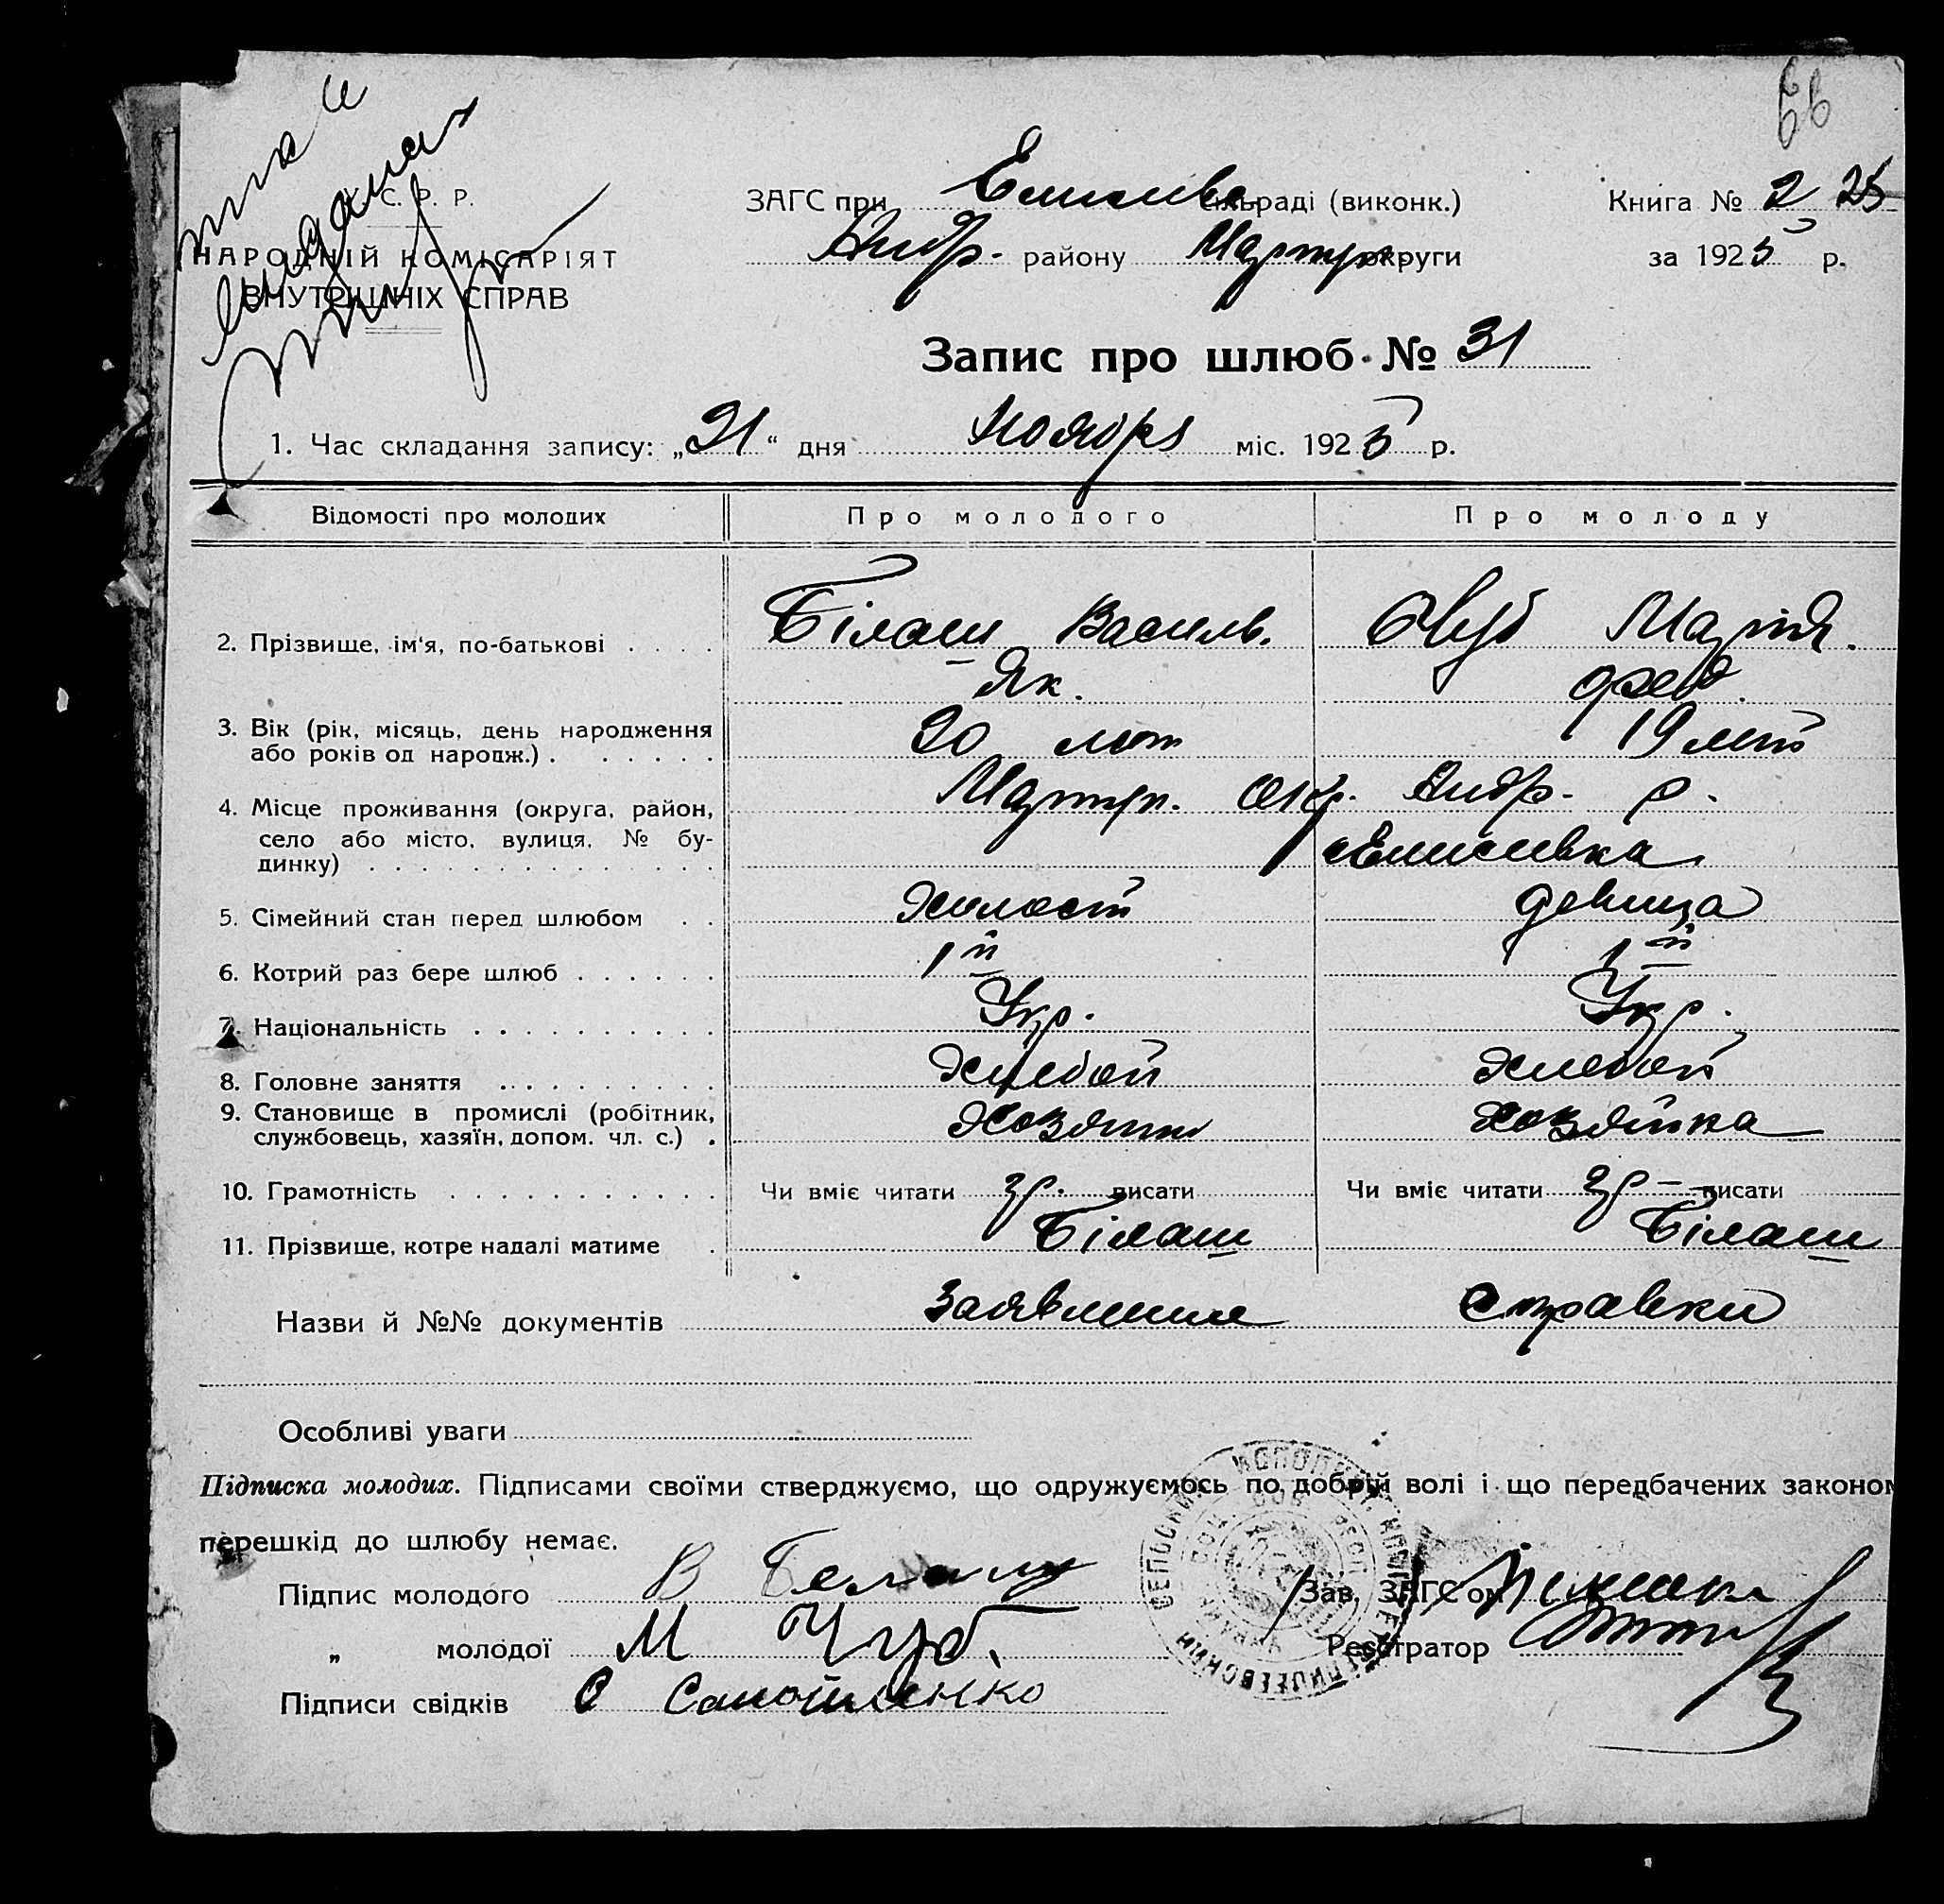 С. Р. Р.
НАРОДНІЙ КОМІСАРІЯТ
ВНУТРІШНІХ СПРАВ
66
ЗАГС при Елисивка сільраді (виконк.)
Андр. району Марiуп. округи
Книга № 2 25
за 1925 р.
Запис про шлюб № 31
1. Час складання запису: „21“ дня Ноября міс. 1925 р.
Відомості про молодих Про молодого Про молоду
2. Прізвище, ім'я, по-батькові Білаш Василь. Чуб Марія.
Як. Фед.
3. Вік (рік, місяць, день народження 20 лет 19 лет
або років од народж.)
4. Місце проживання (округа, район, Мариуп. окр. Андр. р.
село або місто, вулиця, № бу- Елисивка
динку)
5. Сімейний стан перед шлюбом Холост девица
6. Котрий раз бере шлюб 1й 1й
7. Національність Укр. Укр.
8. Головне заняття Хлебоп Хлебоп
9. Становище в промислі (робітник, Хозяин Хозяйка
службовець, хазяїн, допом. чл. с.)
10. Грамотність Чи вміє читати гр. писати Чи вміє читати гр – писати
11. Прізвище, котре надалі матиме Білаш Білаш
Назви й №№ документів Заявление справки
Особливі уваги
Підписка молодих. Підписами своїми стверджуємо, що одружуємось по добрій волі і що передбачених законом
перешкід до шлюбу немає.
Підпис молодого В Белаш Зав. ЗАГС'ом
„ молодої М Чуб. Реєстратор
Підписи свідків С Самойленко